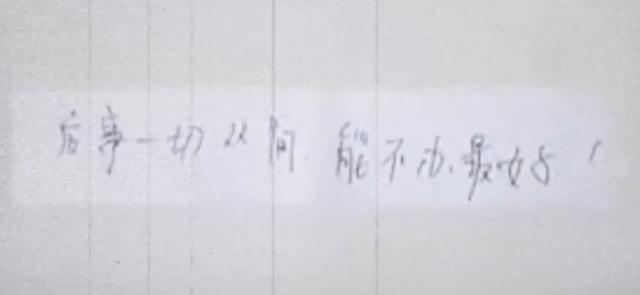 后事一切从简 能不办.最好！